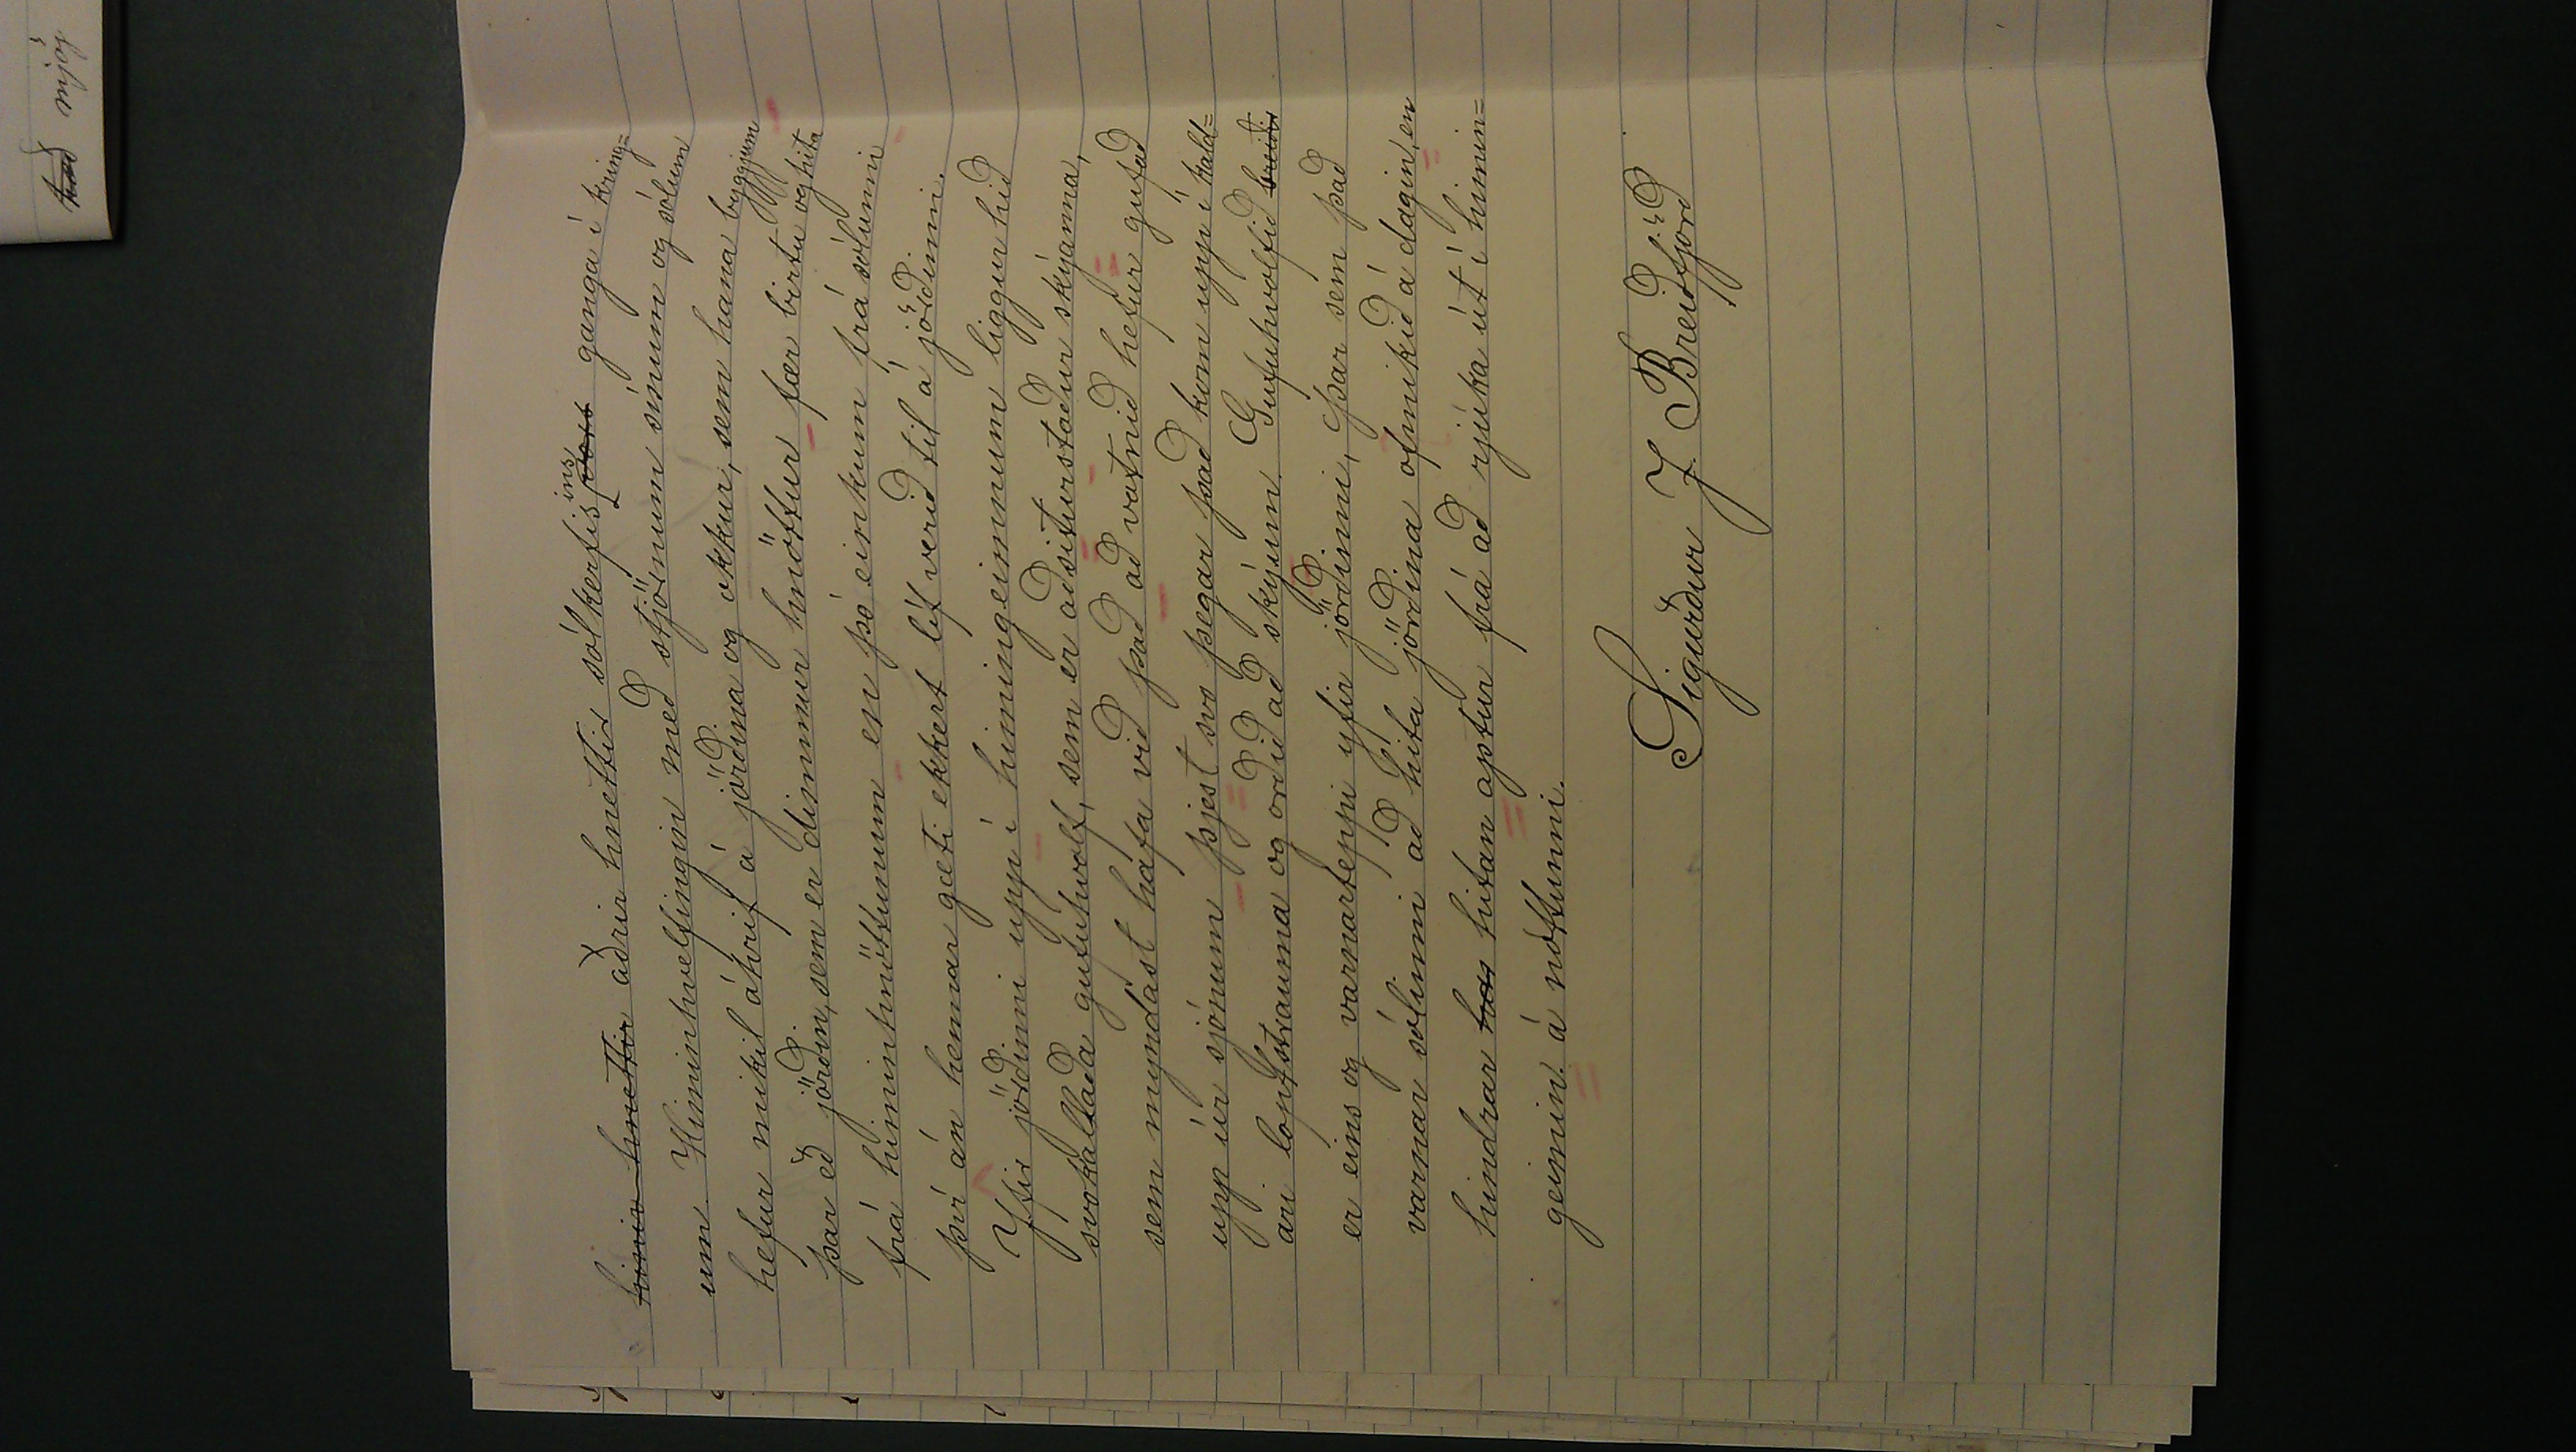 hinir hnettir aðrir hnettir sólkerfisins ganga í kring=
um. Himinhvelfingin með stjörnum sínum og sólum
hefur mikil áhrif á jörðina og okkur, sem hana byggjum
þar eð jörðin, sem er dimmur hnöttur fær birtu og hita
frá himinhnöttunum en þó einkum frá sólunni
því án hennar gæti ekkert líf verið til á jörðinni.
Yfir jörðinni upp í himingeimnum liggur hið
svokallaða gufuhvolf, sem er aðsitursstaður skýanna,
sem myndast hafa við það að vatnið hefur gufað
upp úr sjónum þjest svo þegar það kom upp í kald=
ari loptstrauma og orðið að skýum. Gufuhvolfið breiðir
er eins og varnarteppi yfir jörðinni, þar sem það
varnar sólinni að hita jörðina ofmikið á dagin, en
hindrar hitan aptur frá að rjúka út í himin=
geimin á nóttunni.
Sigurður J. Breiðfjörð
mjög